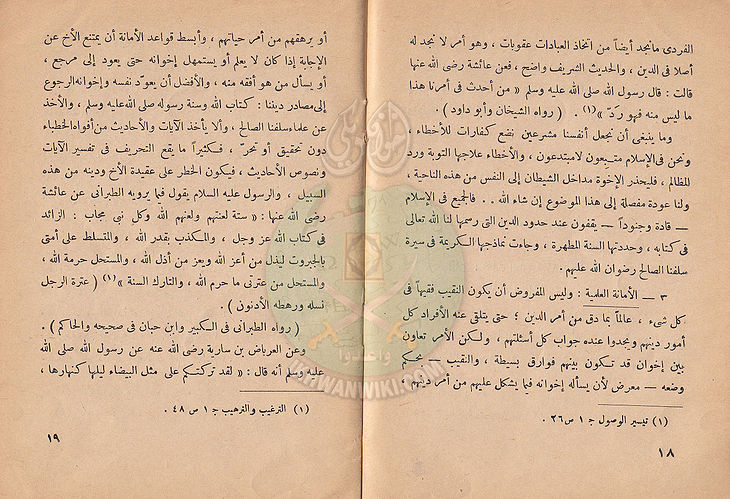 الفردى مانجد أيضاً من اتخاذ العبادات عقوبات ، وهو أمر لا نجد له
أصلا فى الدين ، والحديث الشريف واضح ، فعن عائشة رضى الله عنها
قالت : قال رسول الله صلى الله عليه وسلم « من أحدث فى أمرنا هذا
ما ليس منه فهو ردّ » (١) . ( رواه الشيخان وأبو داود ) .
وما ينبغى أن نجعل أنفسنا مشرعين نضع كفارات للأخطاء ،
ونحن فى الإسلام متبعون لا مبتدعون ، والأخطاء علاجها التوبة ورد
المظالم ، فليحذر الإخوة مداخل الشيطان إلى النفس من هذه الناحية ،
ولنا عودة مفصلة إلى هذا الموضوع إن شاء الله .. فالجميع فى الإسلام
— قادة وجنوداً — يقفون عند حدود الدين التى رسمها لنا الله تعالى
فى كتابه ، وحددتها السنة المطهرة ، وجاءت نماذجها الكريمة فى سيرة
سلفنا الصالح رضوان الله عليهم .
٣ — الأمانة العلمية : وليس المفروض أن يكون النقيب فقيهاً فى
كل شىء ، عالماً بما دق من أمر الدين ؛ حتى يتلقى عنه الأفراد كل
أمور دينهم ويجدوا عنده جواب كل أسئلتهم ، ولكن الأمر تعاون
بين إخوان قد تكون بينهم فوارق بسيطة ، والنقيب — بحكم
وضعه — معرض لأن يسأله إخوانه فيما يشكل عليهم من أمر دينهم ،
(١) تيسير الوصول ج ١ ص ٢٦ .
١٨
أو يرهقهم من أمر حياتهم ، وأبسط قواعد الأمانة أن يمتنع الأخ عن
الإجابة إذا كان لا يعلم أو يستمهل إخوانه حتى يعود إلى مرجع ،
أو يسأل من هو أفقه منه ، والأفضل أن يعوّد نفسه وإخوانه الرجوع
إلى مصادر ديننا : كتاب الله وسنة رسوله صلى الله عليه وسلم ، والأخذ
عن علماء سلفنا الصالح ، وألا يأخذ الآيات والأحاديث من أفواه الخطباء
دون تحقيق أو تحرّ ، فكثيراً ما يقع التحريف فى تفسير الآيات
ونصوص الأحاديث ، فيكون الخطر على عقيدة الأخ ودينه من هذه
السبيل ، والرسول عليه السلام يقول فيما يرويه الطبرانى عن عائشة
رضى الله عنها : « ستة لعنتهم ولعنهم الله وكل نبى مجاب : الزائد
فى كتاب الله عز وجل ، والمكذب بقدر الله ، والمتسلط على أمتى
بالجبروت ليذل من أعز الله ويعز من أذل الله ، والمستحل حرمة الله ،
والمستحل من عترتى ما حرم الله ، والتارك السنة » (١) ( عترة الرجل
نسله ورهطه الأدنون ) .
( رواه الطبرانى فى الكبير وابن حبان فى صحيحه والحاكم ) .
وعن العرباض بن سارية رضى الله عنه عن رسول الله صلى الله
عليه وسلم أنه قال : « لقد تركتكم على مثل البيضاء ليلها كنهارها ،
(١) الترغيب والترهيب ج ١ ص ٤٨ .
١٩
وأعدوا
IKHWANWIKI.COM